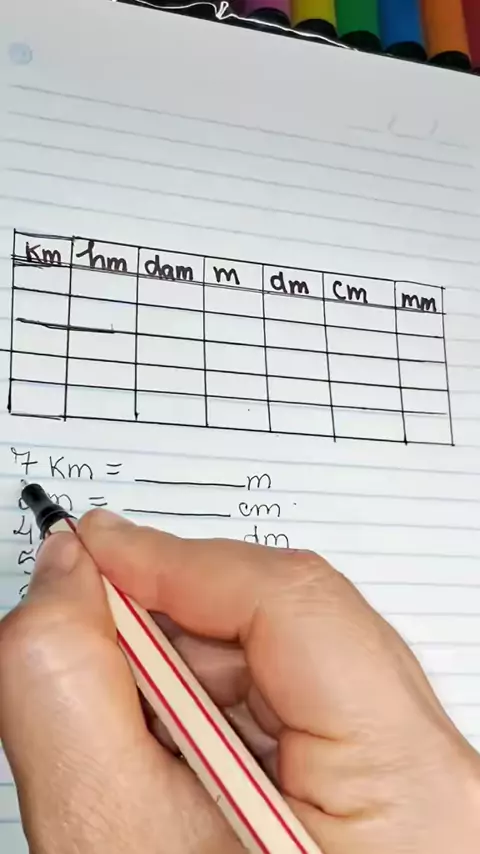 Km hm dam m dm cm mm
7 Km = ______ m
m = ______ cm
4 dm
5